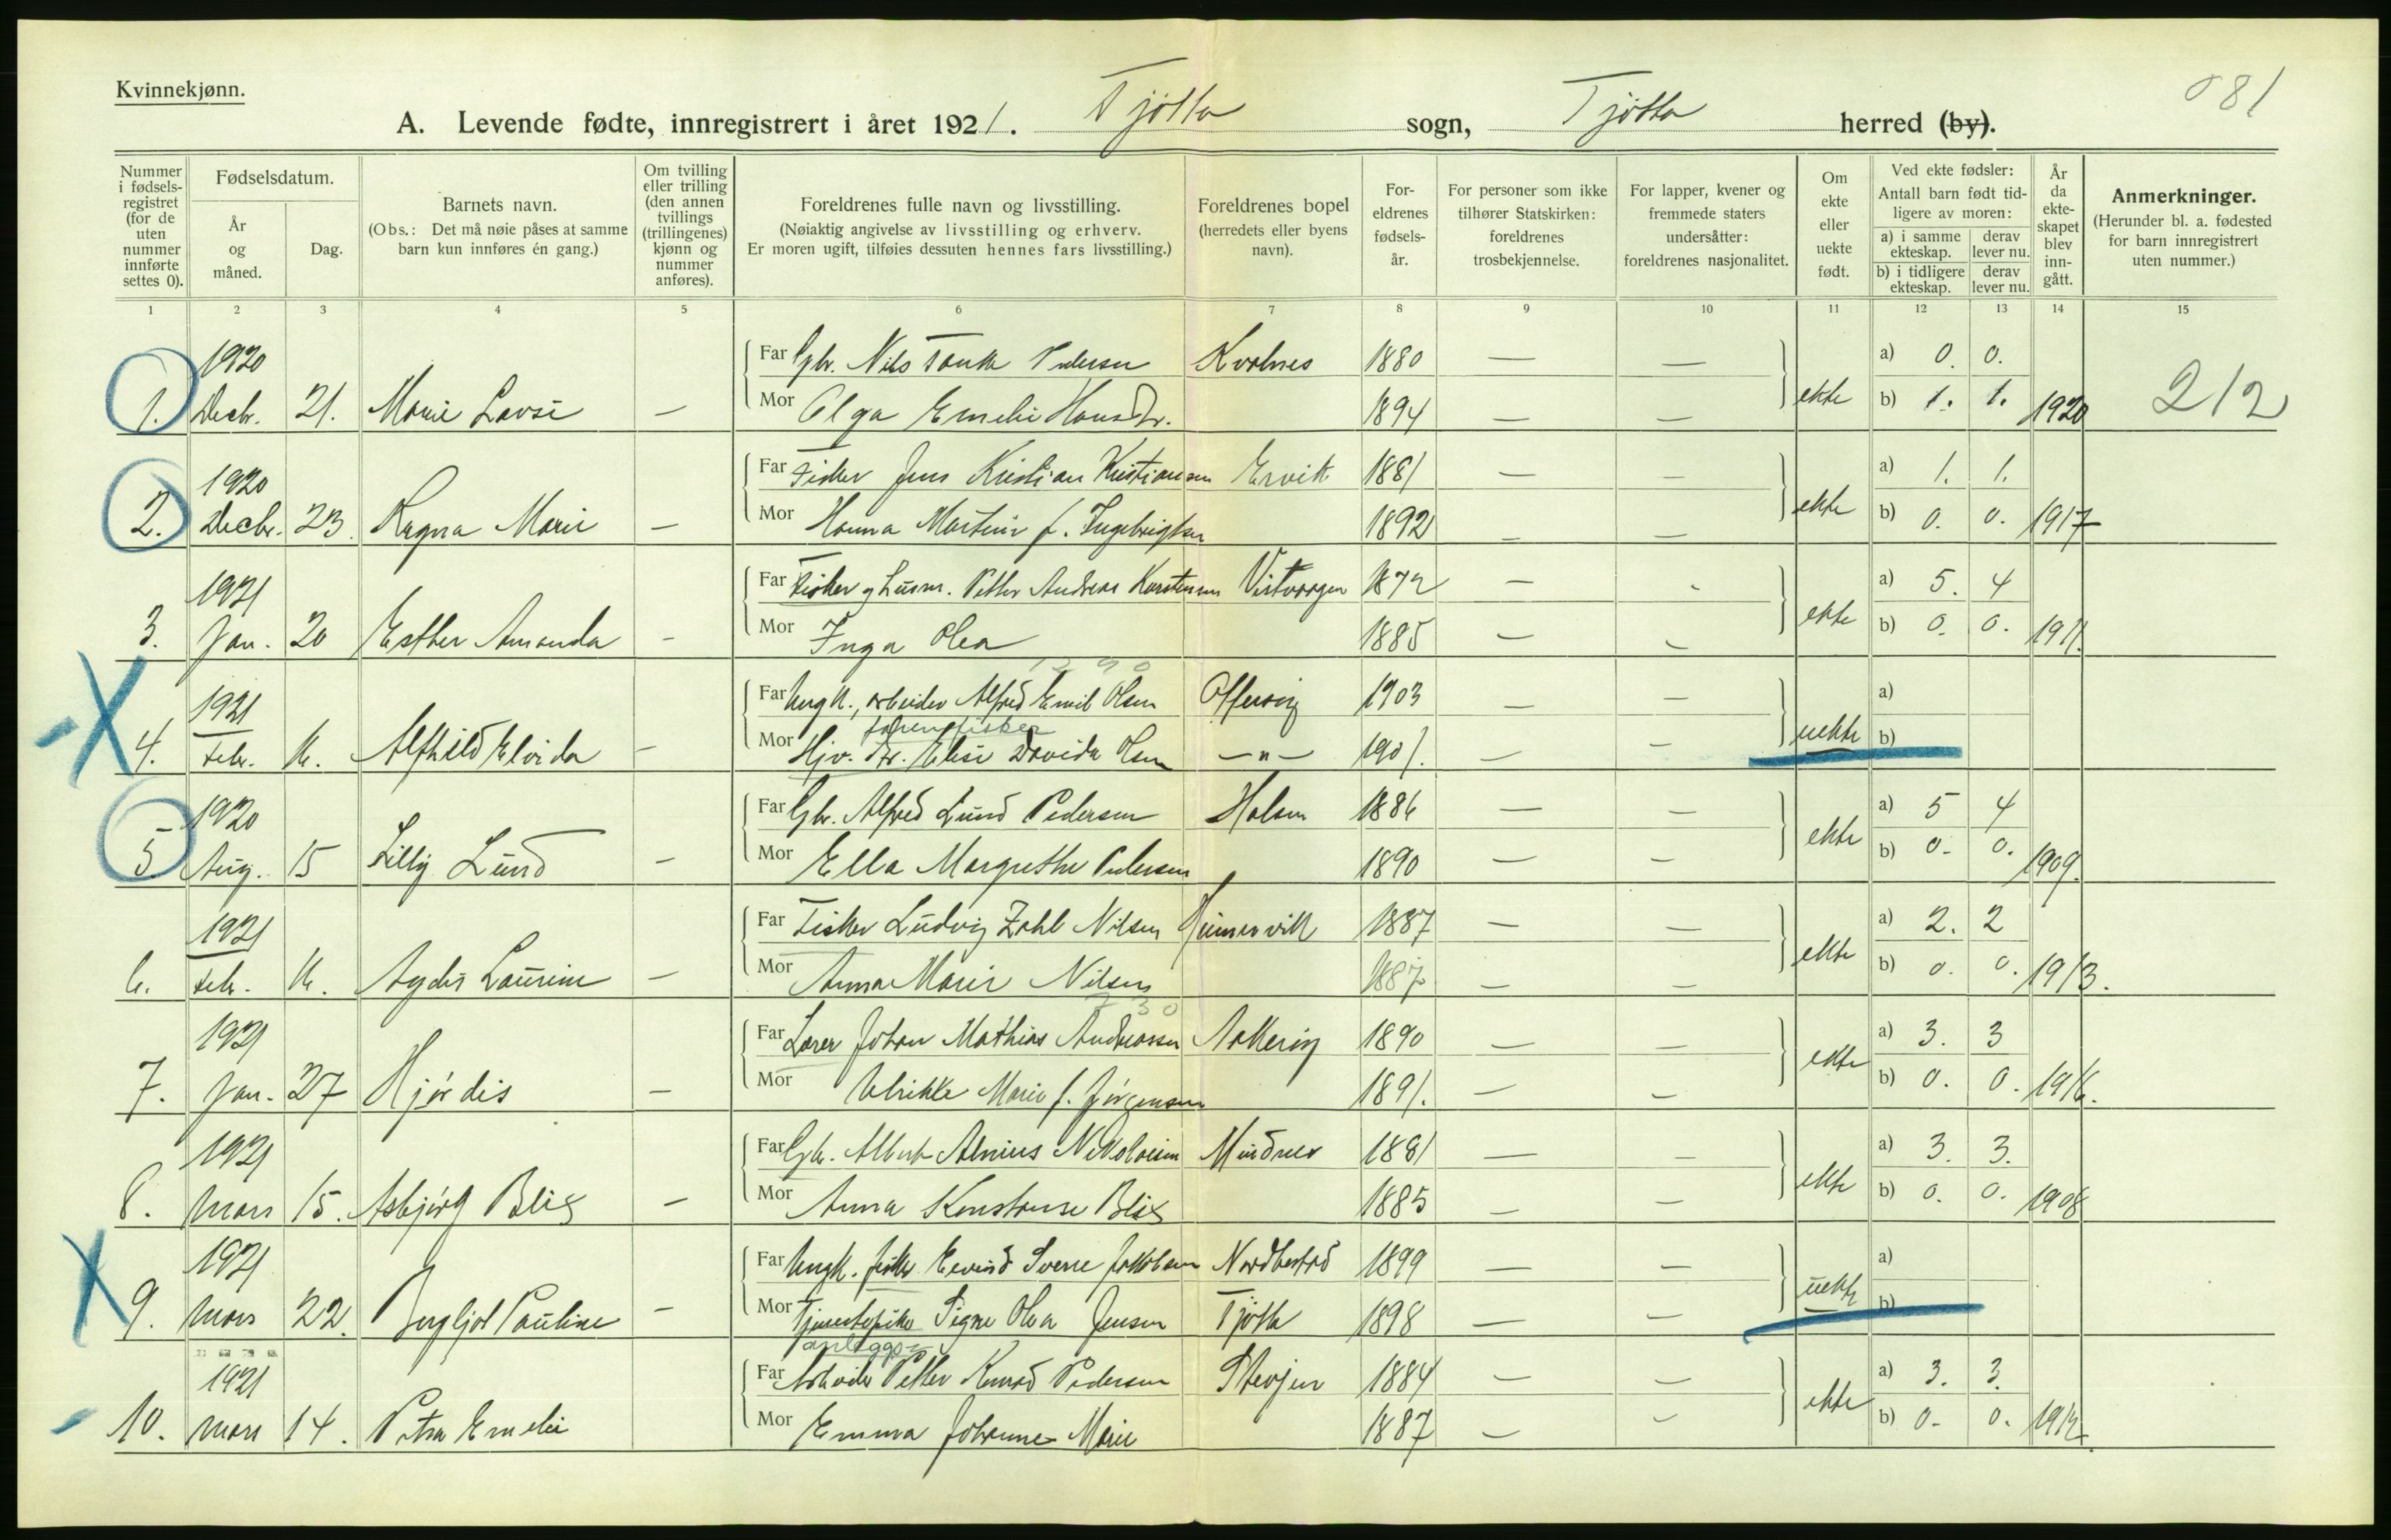 Kvinnekjønn.
081
A. Levende fødte, innregistrert i året 1921. Tjøtta sogn, Tjøtta herred (by).
Nummer i fødselsregistret (for de uten nummer innførte settes 0).
Fødselsdatum.
År og måned.
Dag.
Barnets navn.
(Obs.: Det må nøie påses at samme barn kun innføres én gang.)
Om tvilling eller trilling (den annen tvillings (trillingenes) kjønn og nummer anføres).
Foreldrenes fulle navn og livsstilling.
(Nøiaktig angivelse av livsstilling og erhverv.
Er moren ugift, tilføies dessuten hennes fars livsstilling.)
Foreldrenes bopel (herredets eller byens navn).
Foreldrenes fødselsår.
For personer som ikke tilhører Statskirken: foreldrenes trosbekjennelse.
For lapper, kvener og fremmede staters undersåtter: foreldrenes nasjonalitet.
Om ekte eller uekte født.
Ved ekte fødsler:
Antall barn født tidligere av moren:
a) i samme ekteskap. derav lever nu.
b) i tidligere ekteskap. derav lever nu.
År da ekteskapet blev inngått.
Anmerkninger.
(Herunder bl. a. fødested for barn innregistrert uten nummer.)
1 2 3 4 5 6 7 8 9 10 11 12 13 14 15
1920 Far Gbr. Nils Pedersen 1880 — — a) 0. 0.
1. Decbr. 21. Marie — Mor Olga Emelie Hansdr. 1894 — — ekte b) 1. 1. 1920 212
1920 Far Fisker Jens Kristian Kristiansen Ervik 1881 — — a) 1. 1.
2. Decbr. 23. Ragna Marie — Mor Hanna f. Ingebrigtsen 1892 — — ekte b) 0. 0. 1917
1921 Far Fisker og husm. Petter Andreas Karstensen 1872 — - a) 5. 4
3. Jan. 20 Esther Amanda - Mor Inga Olea 1885 — - ekte b) 0. 0. 1911.
1921 Far Ungk., arbeider Alfred Emil Olsen Offersøy 1903 — — a)
4. Febr. Alfhild Elvida - Mor Elise Davida Olsen —"— 1901. — - uekte b)
1920 Far Gbr. Alfred Lund Pedersen 1886 — — a) 5 4
5 Aug. 15 Lilly Lund — Mor Ella Margrethe Pedersen 1890 — — ekte b) 0. 0. 1909.
1921 Far Fisker Ludvig Zahl Nilsen 1887 — — a) 2. 2
6. Febr. Laurine — Mor Anna Marie Nilsen 1887 — — ekte b) 0. 0. 1913.
730
1921 Far Lærer Johan Mathias Andreassen 1890 — — a) 3. 3
7. Jan. 27 Hjørdis — Mor Ulrikke Marie f. Jörgensen 1891. — — ekte b) 0. 0. 1916.
1921 Far Gbr. Albert Nikolaisen Mindnes 1881 — — a) 3. 3.
8. Mars 15. Asbjørg Blix — Mor Anna Konstanse Blix 1885 — — ekte b) 0. 0. 1908
1921 Far Ungk. fisker Eevind Sverre Jakobsen 1899 — — a)
9. Mars 22. Bergljot Pauline — Mor Tjenestepike Signe Olea Jensen Tjøtta 1898 — — uekte b)
anleggs-
1921 Far Arbeider Petter Konrad Pedersen 1884 — — a) 3. 3.
10. Mars 14. Petra Emelie Mor Emma Johanne Marie 1887 — - ekte b) 0. 0.